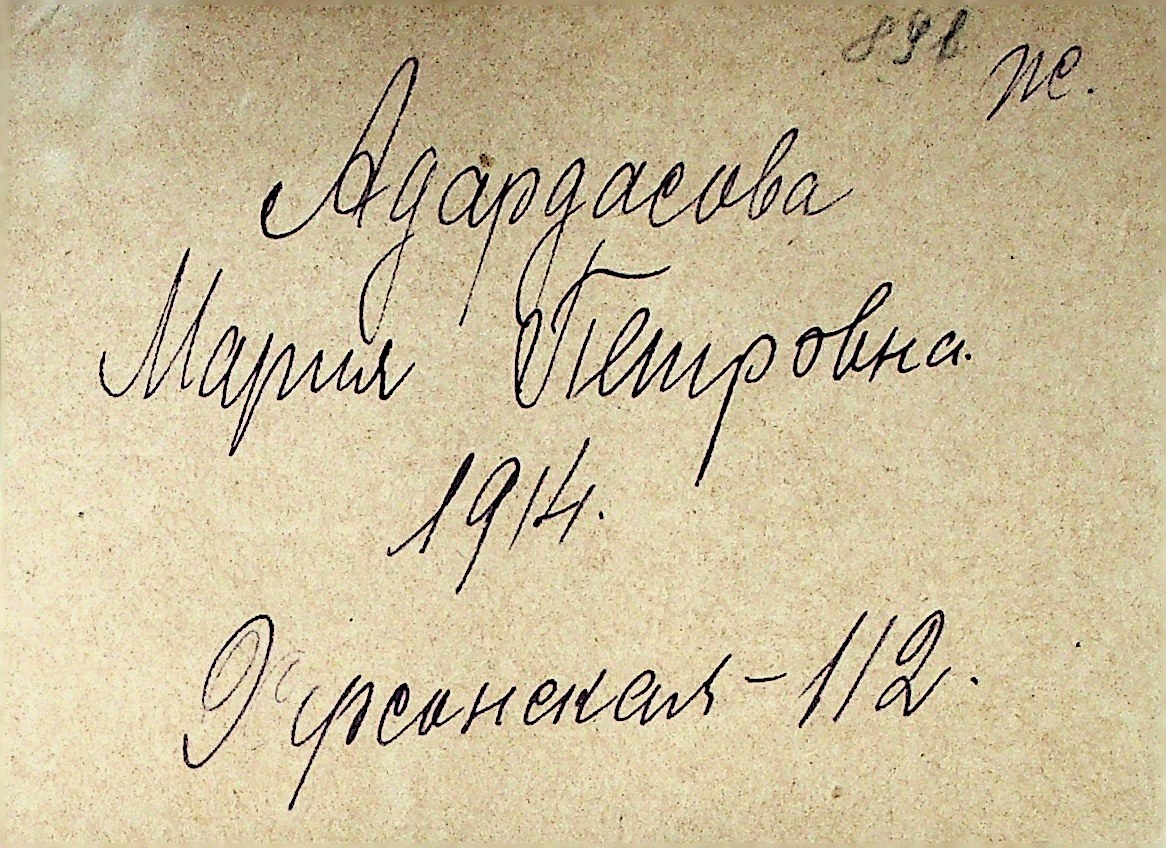 ж.
Адардасова
Мария Петровна.
1914.
Херсонская - 112.